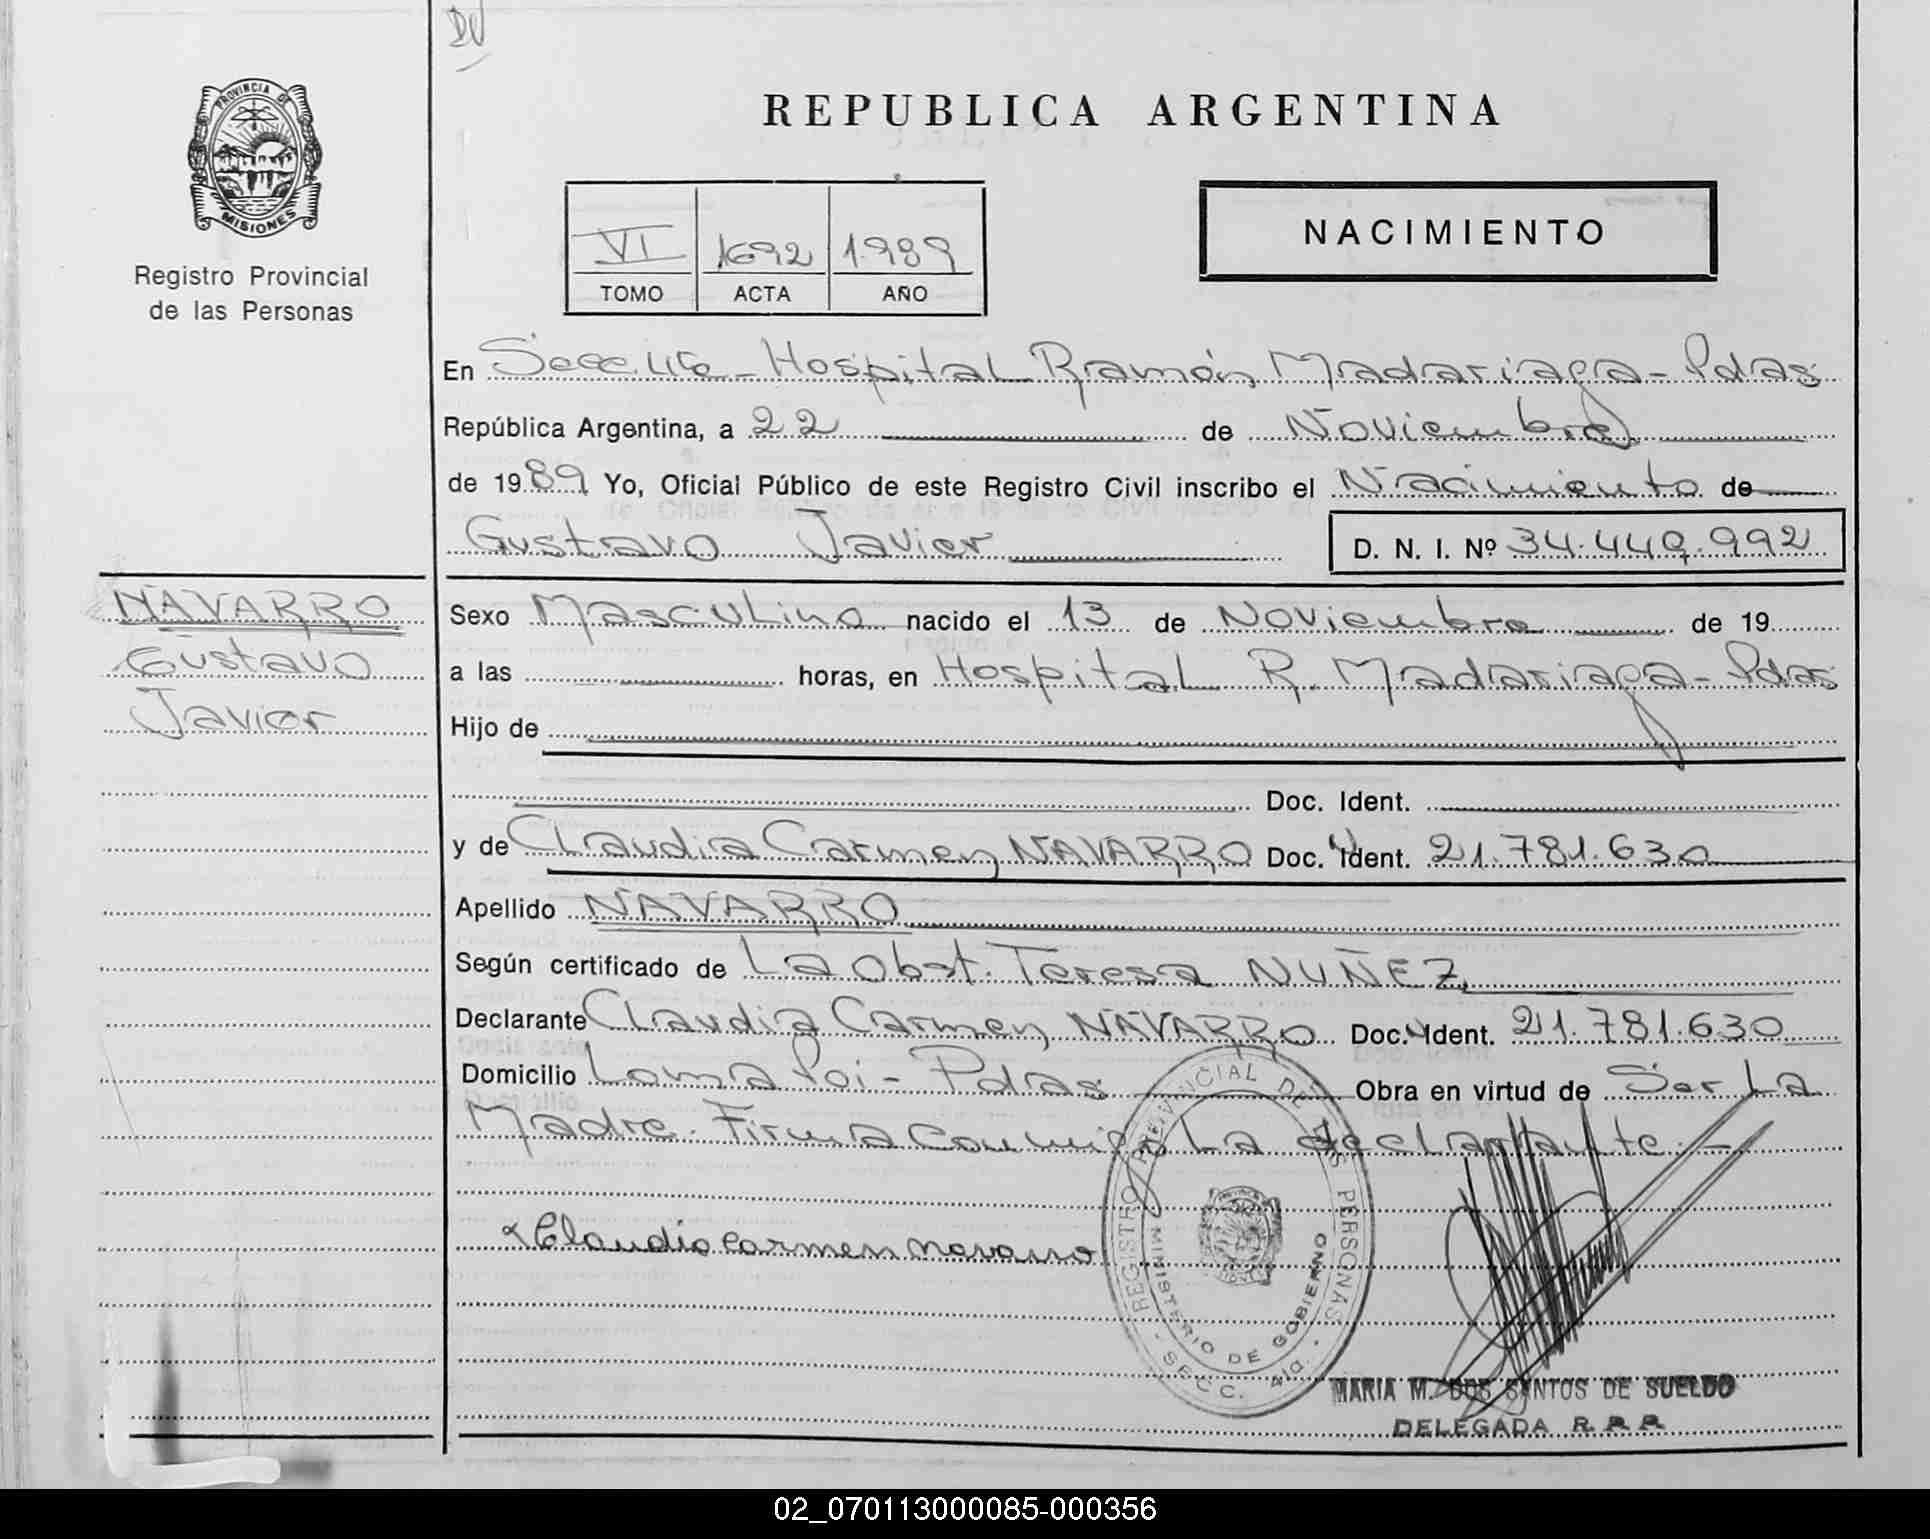 DV
PROVINCIA DE
MISIONES
Registro Provincial
de las Personas
REPUBLICA ARGENTINA
VI 1692 1.989
TOMO ACTA AÑO
NACIMIENTO
En Secc 4ta - Hospital Ramón Madariaga - Pdas
República Argentina, a 22 de Noviembre
de 1989 Yo, Oficial Público de este Registro Civil inscribo el Nacimiento de
Gustavo Javier D. N. I. Nº 34.449.992
NAVARRO
Gustavo
Javier
Sexo Masculino nacido el 13 de Noviembre de 19
a las horas, en Hospital R. Madariaga - Pdas
Hijo de
Doc. Ident.
y de Claudia Carmen NAVARRO Doc. Ident. 21.781.630
Apellido NAVARRO
Según certificado de La Obst. Teresa NUÑEZ
Declarante Claudia Carmen NAVARRO Doc. Ident. 21.781.630
Domicilio Loma Poi - Pdas Obra en virtud de Ser La
Madre. Firma conmigo La declarante. -
Claudia Carmen Navarro
REGISTRO PROVINCIAL DE LAS PERSONAS
MINISTERIO DE GOBIERNO
- SECC. 4ta. -
MARIA M. DOS SANTOS DE SUELDO
DELEGADA R.P.P.
02_070113000085-000356